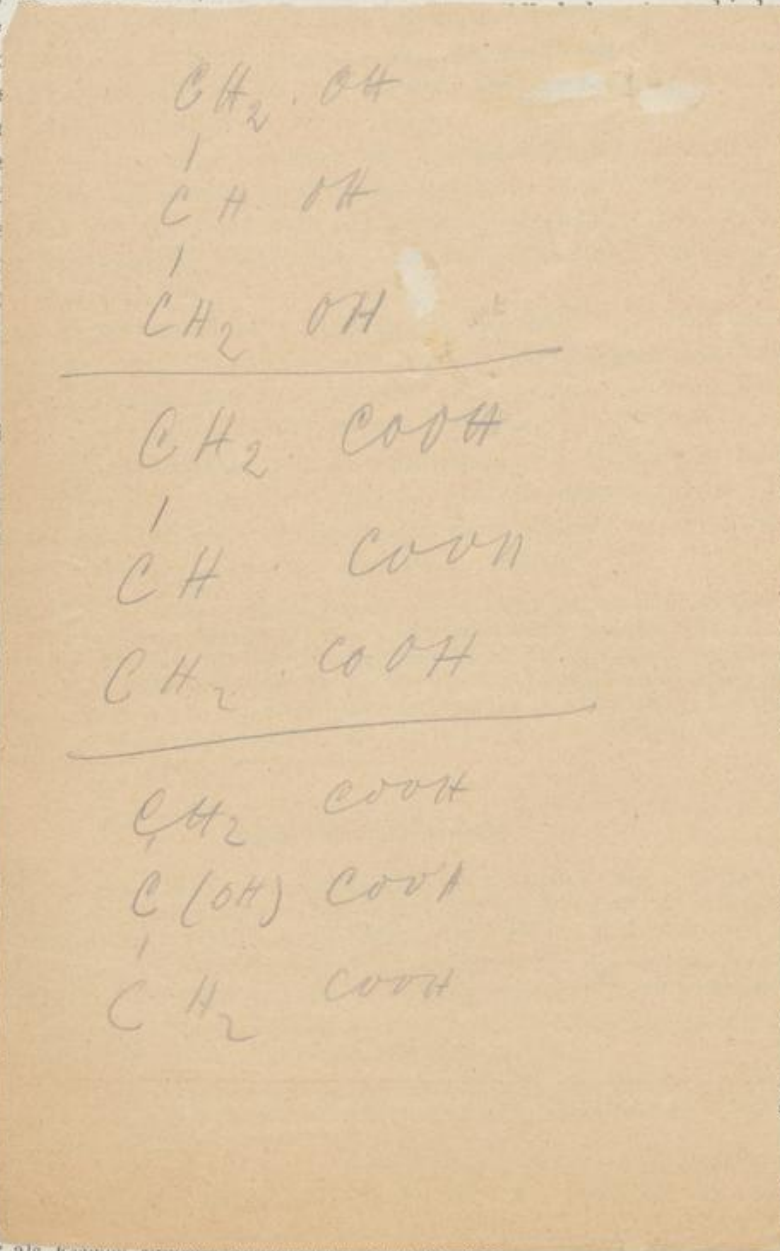 CH2 . OH
|
CH OH
|
CH2 OH
CH2 . COOH
|
CH . COOH
CH2 . COOH
CH2 COOH
|
C (OH) COOH
|
CH2 COOH